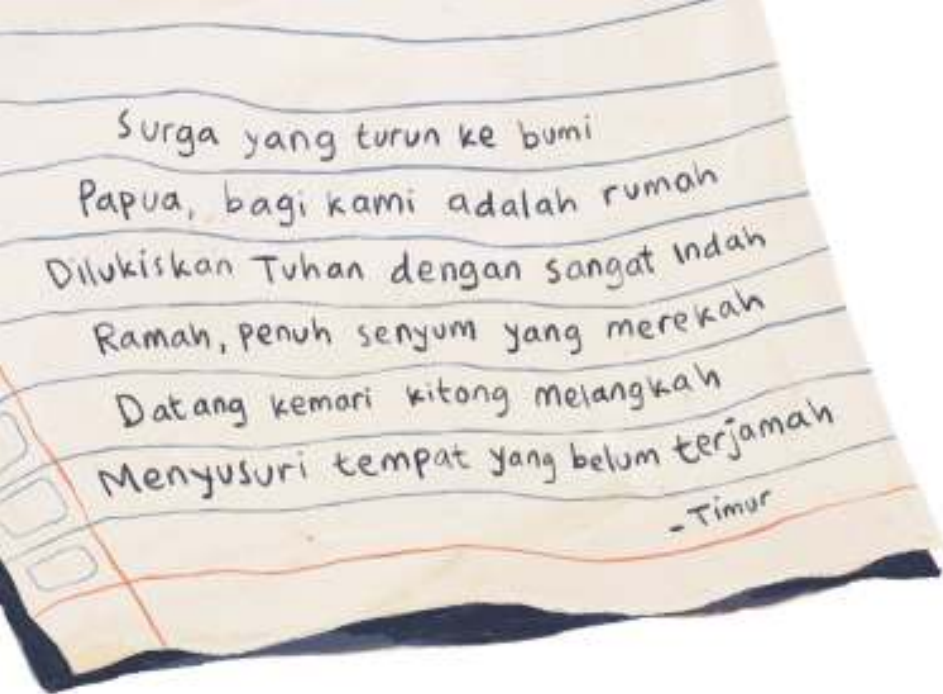 Surga yang turun ke bumi
Papua, bagi kami adalah rumah
Dilukiskan Tuhan dengan sangat Indah
Ramah, penuh senyum yang merekah
Datang kemari kitong melangkah
Menyusuri tempat yang belum terjamah
- Timur